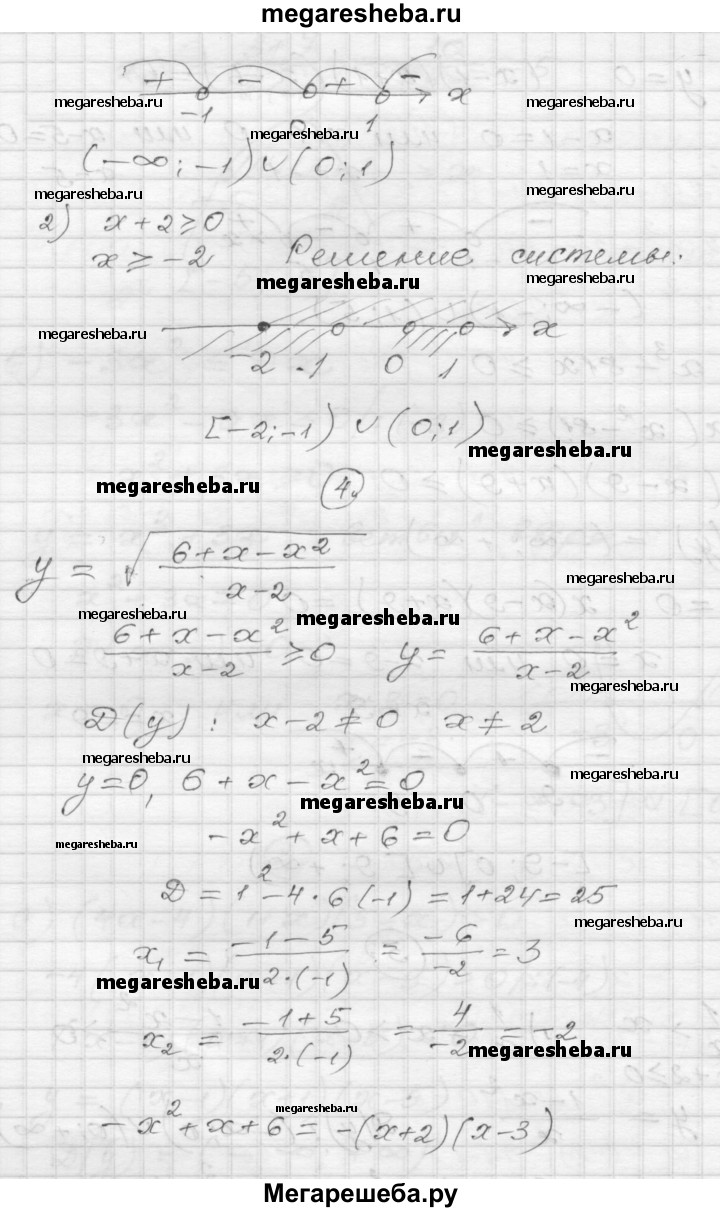 megaresheba.ru
+ - + - x
megaresheba.ru megaresheba.ru
-1 0 1
megaresheba.ru
(-∞; -1) ∪ (0; 1)
megaresheba.ru megaresheba.ru
2) x + 2 ≥ 0
x ≥ -2 Решение системы:
megaresheba.ru megaresheba.ru
megaresheba.ru x
-2 -1 0 1
[-2; -1) ∪ (0; 1)
megaresheba.ru
megaresheba.ru 4.
y = √((6 + x - x²)/(x - 2))
megaresheba.ru
megaresheba.ru megaresheba.ru
(6 + x - x²)/(x - 2) ≥ 0 y = (6 + x - x²)/(x - 2)
megaresheba.ru
D(y): x - 2 ≠ 0 x ≠ 2
megaresheba.ru
y = 0, 6 + x - x² = 0
megaresheba.ru
megaresheba.ru
-x² + x + 6 = 0
megaresheba.ru
D = 1² - 4 · 6 (-1) = 1 + 24 = 25
megaresheba.ru
x₁ = (-1 - 5)/(2·(-1)) = -6/-2 = 3
megaresheba.ru
x₂ = (-1 + 5)/(2·(-1)) = 4/-2 = -2
megaresheba.ru
megaresheba.ru
-x² + x + 6 = -(x+2)(x-3)
Мегарешеба.ру